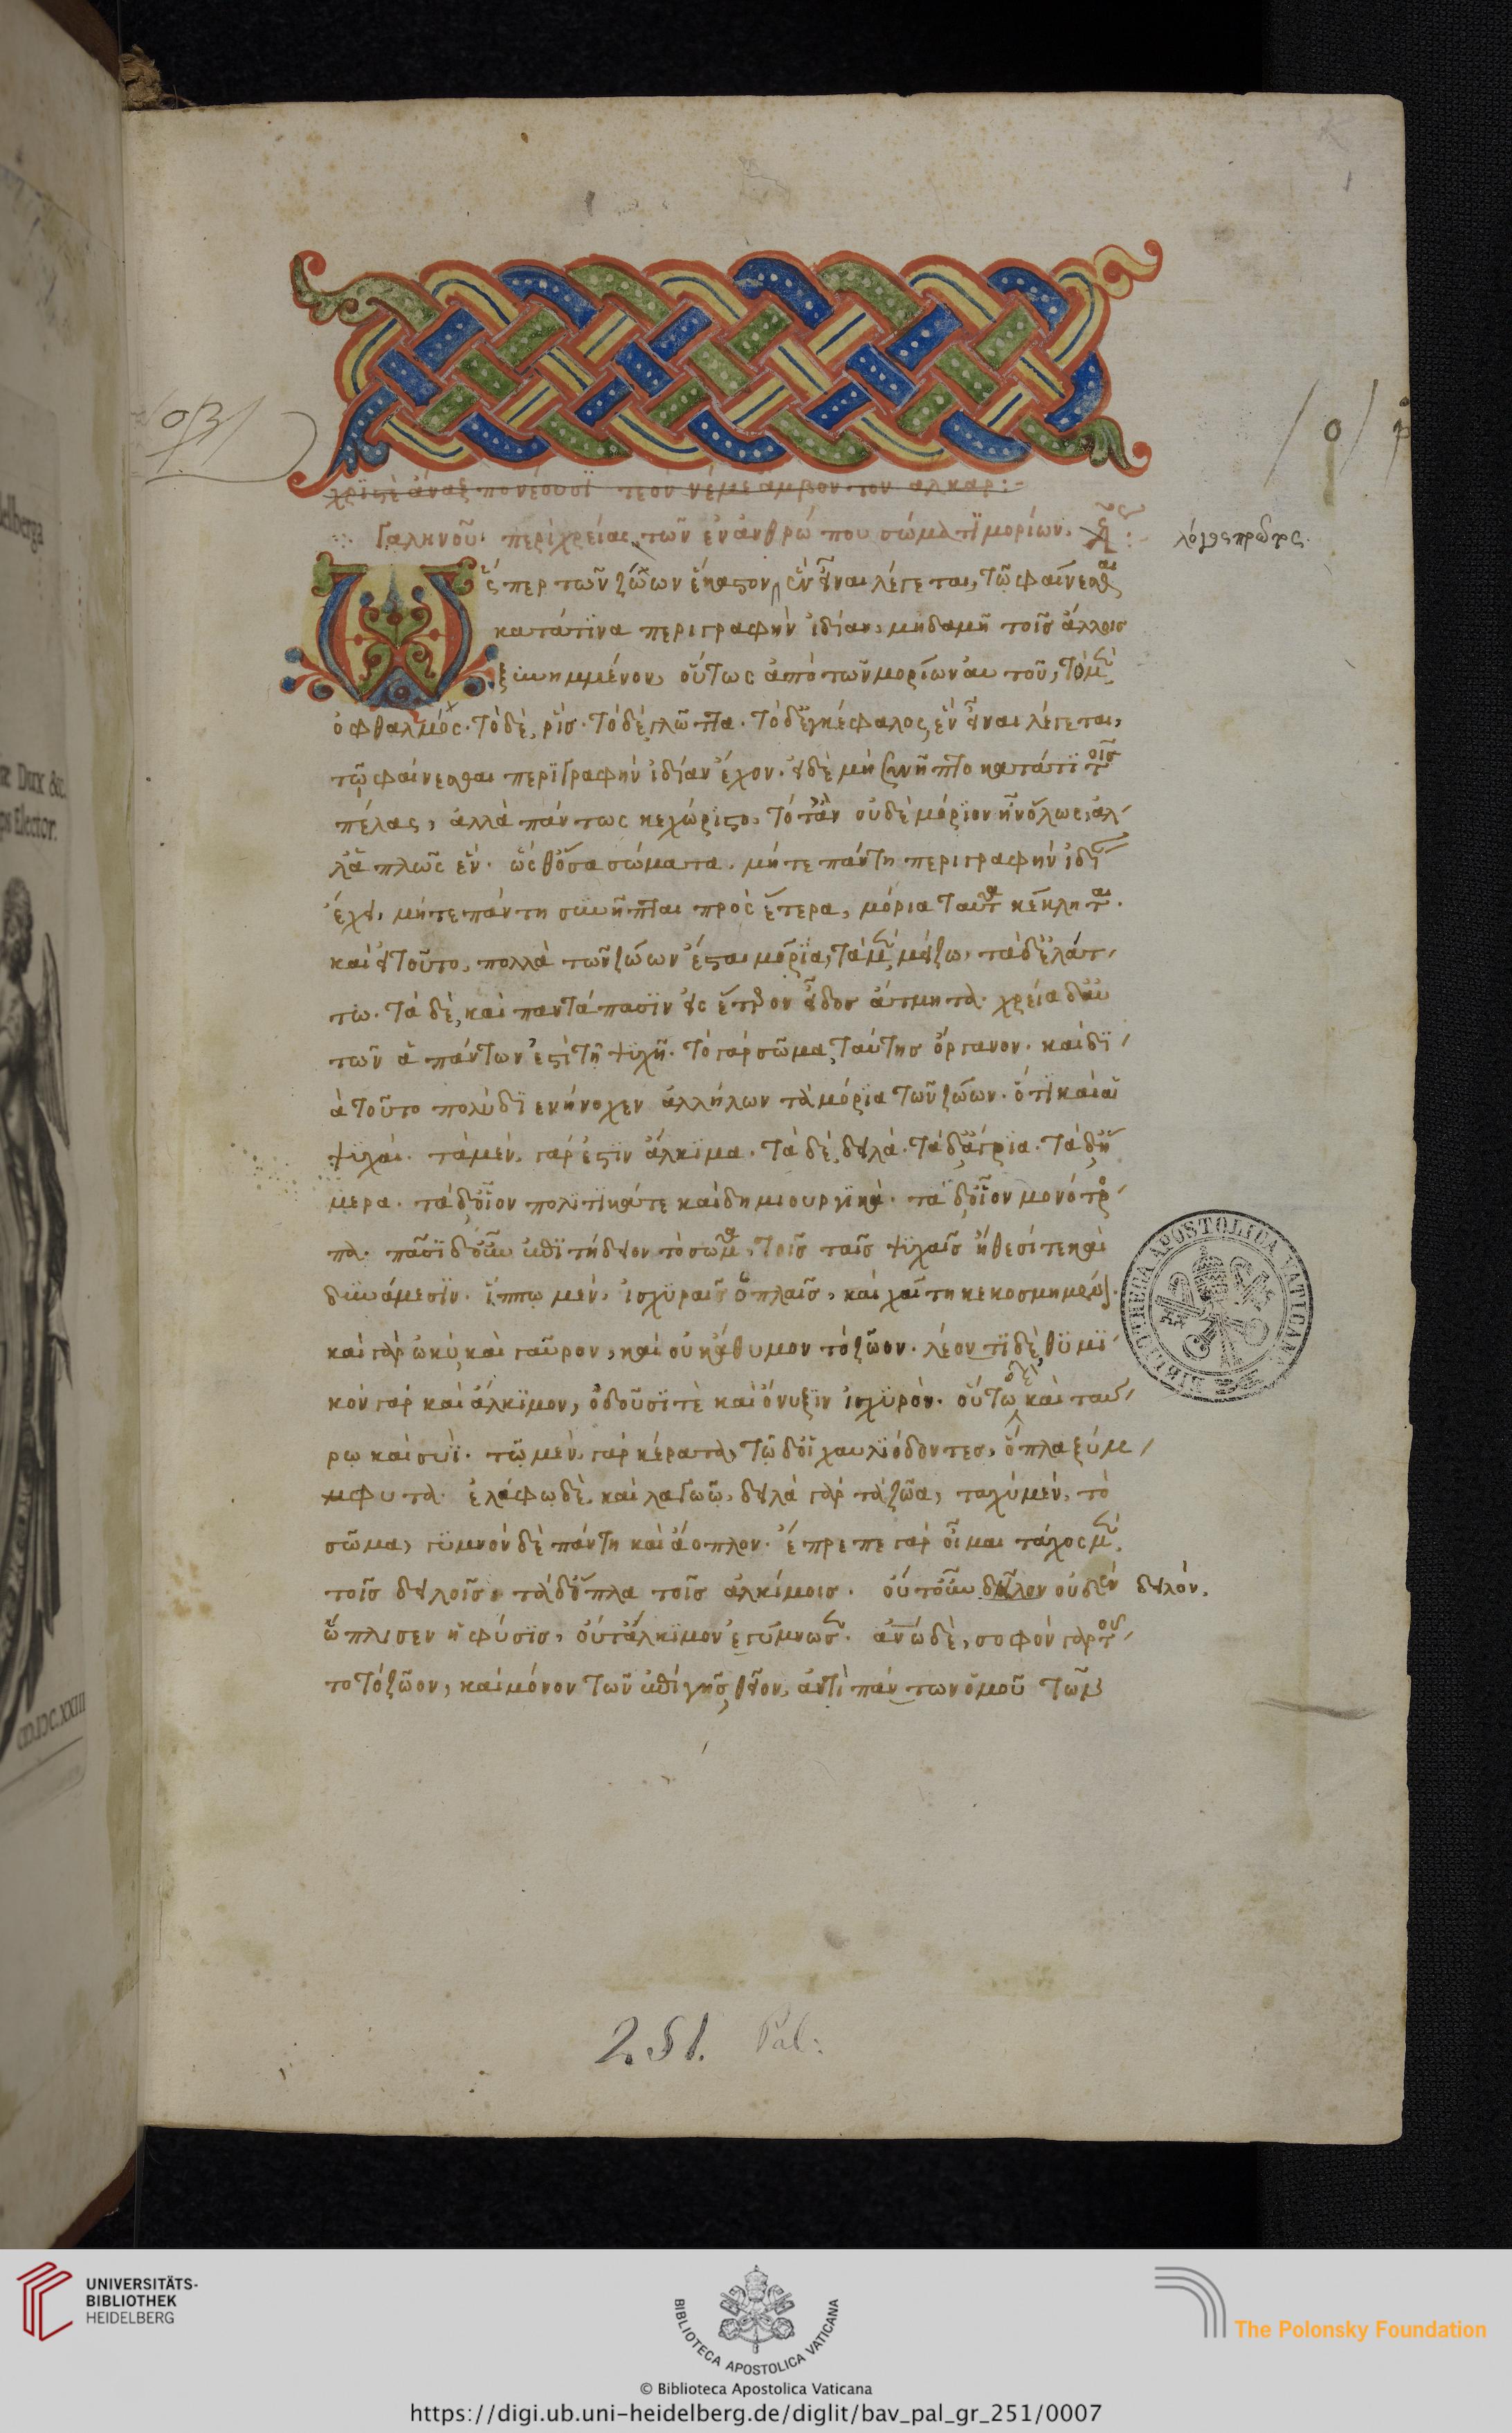 χριστὲ ἄναξ πονέουσϊ τεὸν νέμε
Γαληνοῦ περὶ χρείας τῶν ἐν ἀνθρώπου σώματϊ μορίων.
λόγος πρῶτος.
Ὥσπερ τῶν ζώων ἕκαστον, ἓν εἶναι λέγεται, τῷ φαίνεσθαι
κατάτϊνα περιγραφὴν ἰδίαν, μηδαμῆ τοῖς ἄλλοις
ξυνημμένον, οὕτως ἀπὸ τῶν μορίων αυτοῦ, τὸ μὲν
ὀφθαλμός· τὸ δὲ, ῥίς· τὸ δὲ γλῶττα· τὸ δ' ἐγκέφαλος, ἓν εἶναι λέγεται,
τῷ φαίνεσθαι περϊγραφὴν ἰδίαν ἔχον· εἰ δὲ μὴ συνῆπτο κατάτϊ τοῖς
πέλας, ἀλλὰ πάντως κεχώριστο, τότ' ἂν οὐδὲ μόρϊον ἦν ὅλως, ἀλ
λ' ἁπλῶς ἕν· ὥσθ' ὅσα σώματα, μήτε πάντη περιγραφὴν ἰδί
ἔχει, μήτε πάντη συνῆπται πρὸς ἕτερα, μόρια ταῦτα κέκληται·
καὶ εἰ τοῦτο, πολλὰ τῶν ζώων ἔσται μόρϊα, τὰ μὲν μείζω, τὰ δ' ἐλάτ
τω· τὰ δὲ, καὶ παντάπασϊν εἰς ἕτερον εἶδος ἄτμητα· χρεία δ' αυ
τῶν ἁπάντων ἐστὶ τῇ ψϋχῇ· τὸ γὰρ σῶμα, ταύτης ὄργανον· καὶ δϊ
ὰ τοῦτο πολὺ δϊενήνοχεν ἀλλήλων τὰ μόρϊα τῶν ζώων· ὅτϊ καὶ αἱ
ψϋχαί· τὰ μὲν, γάρ ἐστϊν ἄλκϊμα· τὰ δὲ, δειλά· τὰ δ' ἄγρϊα· τὰ δ' ἥ
μερα· τὰ δ' οἷον πολϊτϊκά τε καὶ δημϊουργϊκά· τὰ δ' οἷον μονότρο
πα· πᾶσϊ δ' οὖν ἐπϊτήδειον τὸ σῶμα, τοῖς ταῖς ψϋχαῖς ἤθεσί τε καὶ
δυνάμεσϊν· ἵππῳ μὲν, ἰσχϋραῖς ὁπλαῖς, καὶ χαίτη κεκοσμημένον·
καὶ γὰρ ὠκὺ, καὶ γαῦρον, καὶ οὐκ ἄθυμον τὸ ζῶον· λέοντϊ δὲ, θϋμϊ
κὸν γὰρ καὶ ἄλκϊμον, ὀδοῦσί τὲ καὶ ὄνυξϊν ἰσχϋρόν· οὕτω δὲ καὶ ταύ
ρῳ καὶ συΐ· τῷ μὲν, γὰρ κέρατα, τῷ δ' οἱ χαυλϊόδοντες, ὅπλα ξύμ
μφυτα· ἐλάφῳ δὲ, καὶ λαγωῷ, δειλὰ γὰρ τὰ ζῶα, ταχὺ μὲν, τὸ
σῶμα, γϋμνὸν δὲ πάντη καὶ ἄοπλον· ἔπρεπε γὰρ οἶμαι τάχος μὲν
τοῖς δειλοῖς, τὰ δ' ὅπλα τοῖς ἀλκίμοις· οὔτ' οὖν δῆλον οὐδὲν δειλόν,
ὥπλισεν ἡ φύσϊς, οὔτ' ἄλκϊμον ἐγύμνωσεν· ἀνῳ δὲ, σοφὸν γὰρ τοῦ
το τὸ ζῶον, καὶ μόνον τῶν ἐπὶ γῆς, θεῖον, ἀντὶ πάντων ὁμοῦ τῶν
2.51. Pal:
BIBLIOTHECA APOSTOLICA VATICANA
1
UNIVERSITÄTS-
BIBLIOTHEK
HEIDELBERG
BIBLIOTECA APOSTOLICA VATICANA
The Polonsky Foundation
© Biblioteca Apostolica Vaticana
https://digi.ub.uni-heidelberg.de/diglit/bav_pal_gr_251/0007